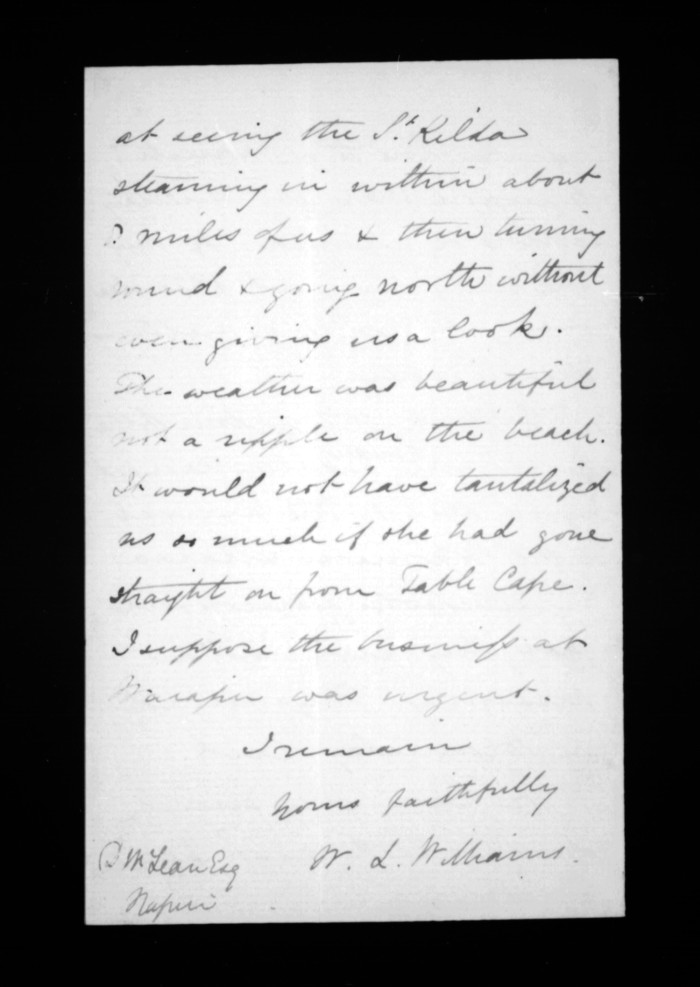 at seeing the St. Kilda
steaming in within about
miles of us & then turning
round & going north without
even giving us a look.
The weather was beautiful
not a ripple on the beach.
It would not have tantalized
us so much if she had gone
straight on from Table Cape.
I suppose the business at
was urgent.
I remain
Yours faithfully
W. L. Williams.
D McLean Esq
Napier